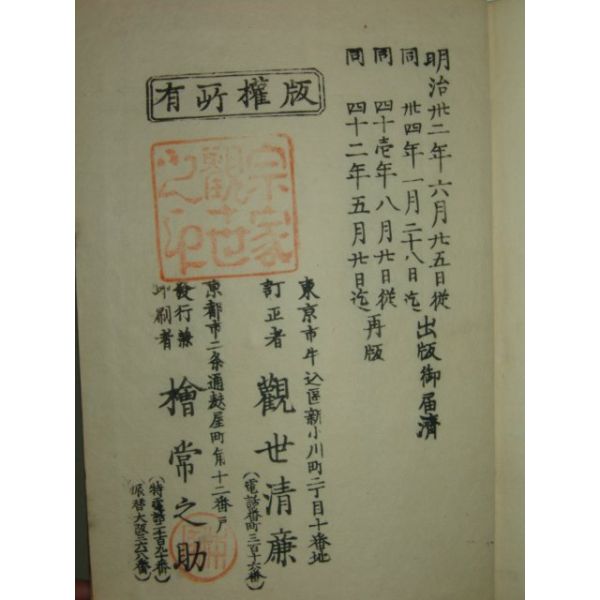 明治卅二年六月廿五日從
同 卅四年一月二十八日迄
出版御届濟
同 四十壱年八月廿日從
同 四十二年五月廿日迄
再版
版權所有
宗家
觀世
之印
東京市牛込區新小川町二丁目十番地
訂正者 觀世清廉
(電話番町三百十六番)
京都市二条通麩屋町角十二番戸
發行兼
印刷者
檜常之助
(特電話二千百九十番)
(振替大阪三六六八番)